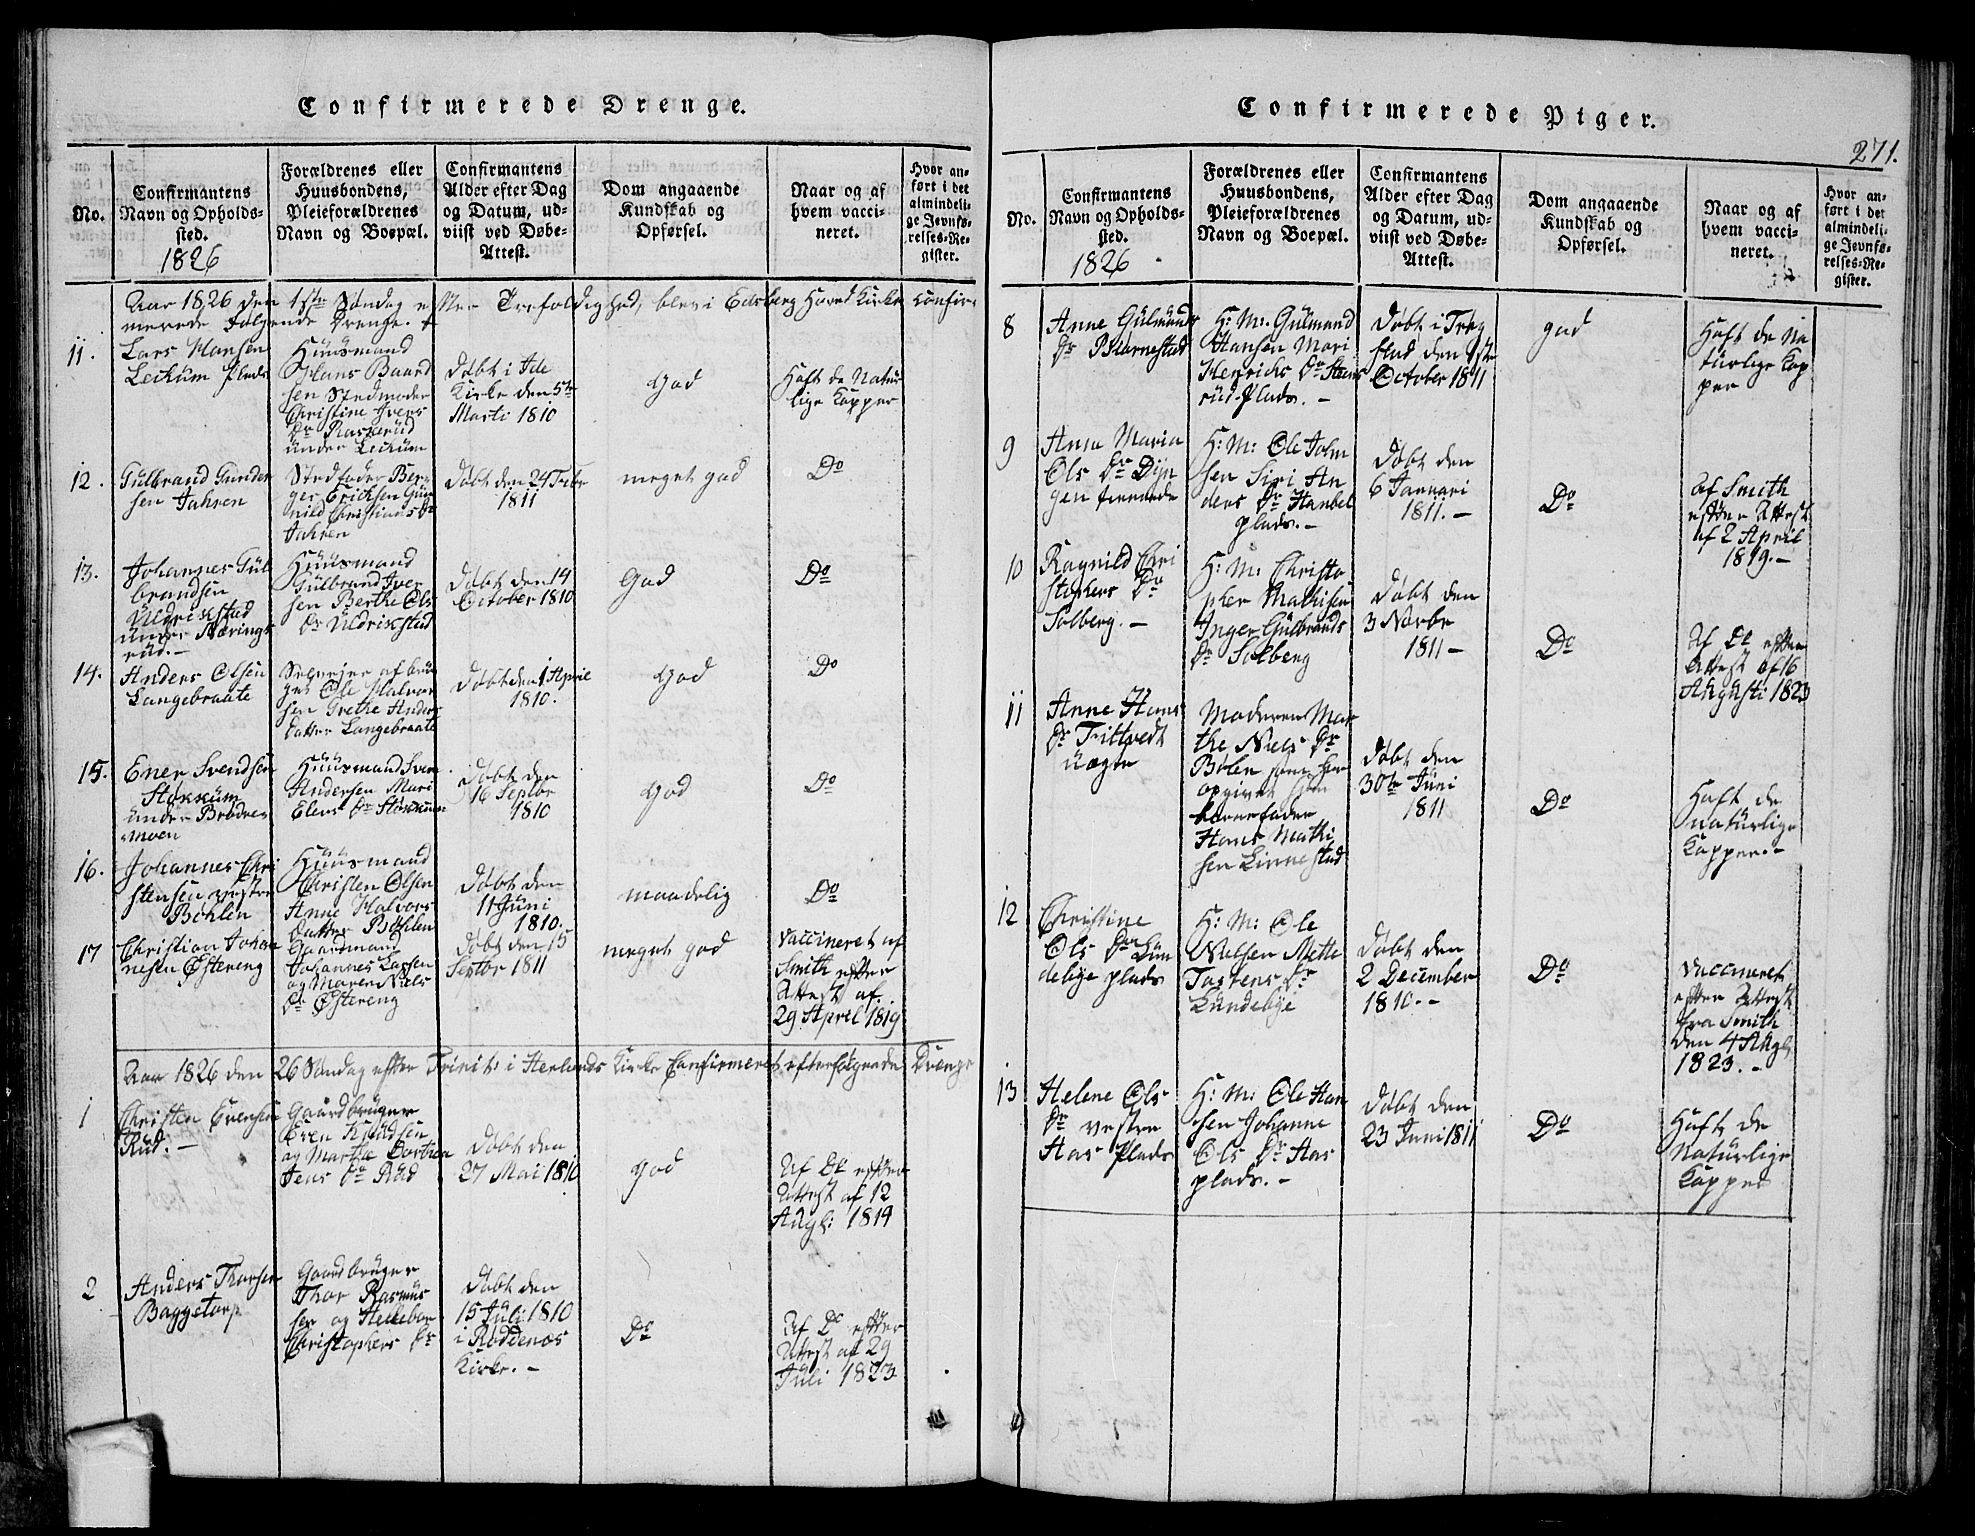 Confirmerede Drenge.
No.
Confirmantens
Navn og Opholds-
sted.
1826
Forældrenes eller
Huusbondens,
Pleieforældrenes
Navn og Boepæl.
Confirmantens
Alder efter Dag
og Datum, ud-
viist ved Døbe-
Attest.
Dom angaaende
Kundskab og
Opførsel.
Naar og af
hvem vacci-
neret.
Hvor an-
ført i det
almindeli-
ge Jevnfø-
relses-Re-
gister.
Aar 1826 den 1ste Søndag efter Trefoldighed, blev i Edsberg Hoved Kirke Confir-
merede følgende Drenge.
11.
Lars Hansen
Leckum Plads
Huusmand
Hans Baard
sen Stedmoder
Christine Ivers
Dr Raskerud
under Leckum
Døbt i Ide
Kirke den 5te
Marti 1810
God
Haft de Natur
lige Kopper
12.
Gulbrand Gunder
sen Jahren
Stedfader Ber-
ger Erichsen Gun
nild Christians Dr
Jahren
Døbt den 24 Febr
1811
meget god
Do
13.
Johannes Gul
brandsen
Uldrikstad
under Nærings
rud.-
Huusmand
Gulbrand Iver
sen Berthe Ols
Dr Uldrikstad
Døbt den 14
October 1810
God
Do
14.
Anders Olsen
Langebraate
Selveier af brug
get Ole Halvor
sen Grethe Anders
datter Langebraate
Døbt den 1 April
1810.
God
Do
15.
Ener Svendsen
Stokkum
under Brødres
moen
Huusmand Sven
Andersen Mari
Elens Dr Stokkum
Døbt den
16 Septbr
1810
God
Do
16.
Johannes Chri
stensen vestre
Bøhlen
Huusmand
Christen Olsen
Anne Halvors
datter Bøhlen
Døbt den
11 Juni
1810.
maadelig
Do
17
Christian Johan
nesen Østereng
Gaardmand
Johannes Larsen
og Maren Niels
Dr Østereng
Døbt den 15
Septbr 1811
meget god
Vaccineret af
Smith efter
Attest af
29 April 1819
Aar 1826 den 26 Søndag efter Trinit: i Herlands Kirke Confirmeret efterfølgende Drenge
1
Christen Evensen
Rud.-
Gaardbruger
Even Knudsen
og Marthe Dorthea
Jens Dr Rud
Døbt den
27 Mai 1810
God
Af Do efter
Attest af 12
Aug: 1819
2
Anders Thorsen
Baggetorp
Gaardbruger
Thor Rasmus
sen og Hellebor
Christophers Dr
Døbt den
15 Juli 1810
i Røddenæs
Kirke.-
Do
Af Do efter
Attest af 29
Juli 1823
Confirmerede Piger.
271.
No.
Confirmantens
Navn og Opholds-
sted.
1826
Forældrenes eller
Huusbondens,
Pleieforældrenes
Navn og Boepæl.
Confirmantens
Alder efter Dag
og Datum, ud-
viist ved Døbe-
Attest.
Dom angaaende
Kundskab og
Opførsel.
Naar og af
hvem vacci-
neret.
Hvor an-
ført i det
almindeli-
ge Jevnfø-
relses-Re-
gister.
8
Anne Gulmunds
Dr Biørnestad
H: M: Gulmund
Hansen Mari
Henrichs Dr Steens
rud-Plads.-
Døbt i Trøg
stad den 1ste
October 1811
god
Haft de Na
turlige Kop
per
9
Anna Maria
Ols Dr
H: M: Ole John
sen Siri An
ders Dr
plads.-
Døbt den
6 Januari
1811.-
Do
Af Smith
efter Attest
af 2 April
1819.-
10
Ragnild Chri
stophers Dr
Solberg.-
H: M: Christo
pher Mathisen
Inger Gulbrands
Dr Solberg
Døbt den
3 Novbr
1811-
Do
Af Do efter
Attest af 16
Augusti 1823
11
Anne Hans
Dr Trittvedt
Moderen Mar
the Niels Dr
Bølen som har
opgivet som
barnefader
Hans Mathi
sen Linnestad
Døbt den
30te Juni
1811
Do
Haft de
naturlige
Kopper.-
12
Christine
Ols Dr Lun
debye plads
H: M: Ole
Nielsen Mette
Tostens Dr
Lundebye
Døbt den
2 December
1810.-
Do
Vaccineret
efter Attest
fra Smith
den 4 Aug:
1823.-
13
Helene Ols
Dr vestre
Has Plads
H: M: Ole Han
sen Johanne
Ols Dr Has
plads.-
Døbt den
23 Juni 1811
Do
Haft de
Naturlige
Kopper